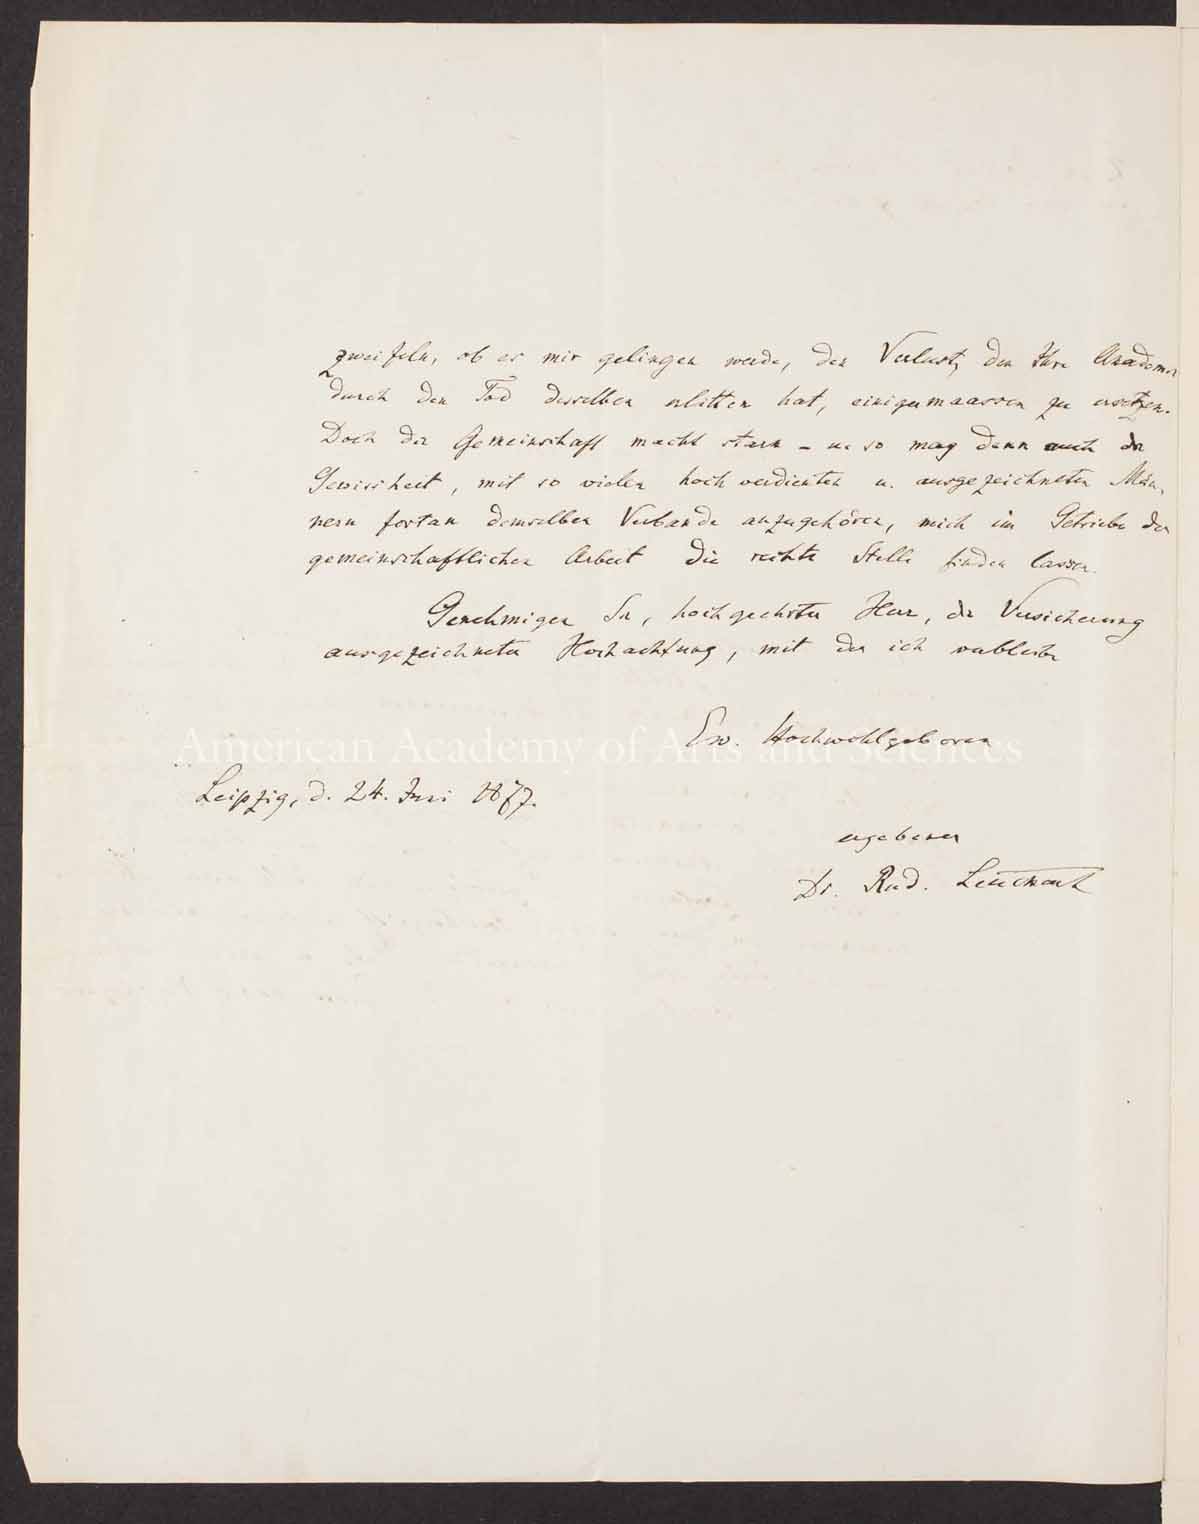 zweifeln, ob es mir gelingen werde, den Verlust, den Ihre Akademie
durch den Tod desselben erlitten hat, einigermaassen zu ersetzen.
Doch die Gemeinschaft macht stark – u. so mag denn auch die
Gewissheit, mit so vielen hoch verdienten u. ausgezeichneten Män-
nern fortan demselben Verbande anzugehören, mich im Getriebe der
gemeinschaftlichen Arbeit die rechte Stelle finden lassen.
Genehmigen Sie, hochgeehrter Herr, die Versicherung
ausgezeichneter Hochachtung, mit der ich verbleibe
Ew. Hochwohlgeboren
American Academy of Arts and Sciences
Leipzig, d. 24. Juni 1877.
ergebener
Dr. Rud. Leuckart